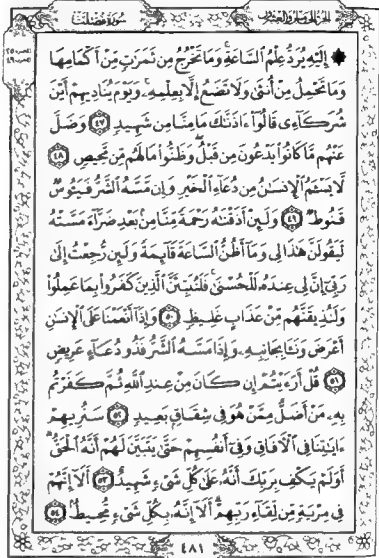 سورة فصلت
الجزء الخامس والعشرون
إِلَيْهِ يُرَدُّ عِلْمُ السَّاعَةِ وَمَا تَخْرُجُ مِن ثَمَرَاتٍ مِّنْ أَكْمَامِهَا
وَمَا تَحْمِلُ مِنْ أُنثَىٰ وَلَا تَضَعُ إِلَّا بِعِلْمِهِ وَيَوْمَ يُنَادِيهِمْ أَيْنَ
شُرَكَاءِي قَالُوا ءَاذَنَّاكَ مَا مِنَّا مِن شَهِيدٍ ٤٧ وَضَلَّ
عَنْهُم مَّا كَانُوا يَدْعُونَ مِن قَبْلُ وَظَنُّوا مَا لَهُم مِّن مَّحِيصٍ ٤٨
لَّا يَسْـَٔمُ الْإِنسَانُ مِن دُعَاءِ الْخَيْرِ وَإِن مَّسَّهُ الشَّرُّ فَيَـُٔوسٌ
قَنُوطٌ ٤٩ وَلَئِنْ أَذَقْنَاهُ رَحْمَةً مِّنَّا مِن بَعْدِ ضَرَّاءَ مَسَّتْهُ
لَيَقُولَنَّ هَٰذَا لِي وَمَا أَظُنُّ السَّاعَةَ قَائِمَةً وَلَئِن رُّجِعْتُ إِلَىٰ
رَبِّي إِنَّ لِي عِندَهُ لَلْحُسْنَىٰ فَلَنُنَبِّئَنَّ الَّذِينَ كَفَرُوا بِمَا عَمِلُوا
وَلَنُذِيقَنَّهُم مِّنْ عَذَابٍ غَلِيظٍ ٥٠ وَإِذَا أَنْعَمْنَا عَلَى الْإِنسَانِ
أَعْرَضَ وَنَـَٔا بِجَانِبِهِ وَإِذَا مَسَّهُ الشَّرُّ فَذُو دُعَاءٍ عَرِيضٍ
٥١ قُلْ أَرَءَيْتُمْ إِن كَانَ مِنْ عِندِ اللَّهِ ثُمَّ كَفَرْتُم
بِهِ مَنْ أَضَلُّ مِمَّنْ هُوَ فِي شِقَاقٍ بَعِيدٍ ٥٢ سَنُرِيهِمْ
ءَايَاتِنَا فِي الْآفَاقِ وَفِي أَنفُسِهِمْ حَتَّىٰ يَتَبَيَّنَ لَهُمْ أَنَّهُ الْحَقُّ
أَوَلَمْ يَكْفِ بِرَبِّكَ أَنَّهُ عَلَىٰ كُلِّ شَيْءٍ شَهِيدٌ ٥٣ أَلَا إِنَّهُمْ
فِي مِرْيَةٍ مِّن لِّقَاءِ رَبِّهِمْ أَلَا إِنَّهُ بِكُلِّ شَيْءٍ مُّحِيطٌ ٥٤
٤٨١